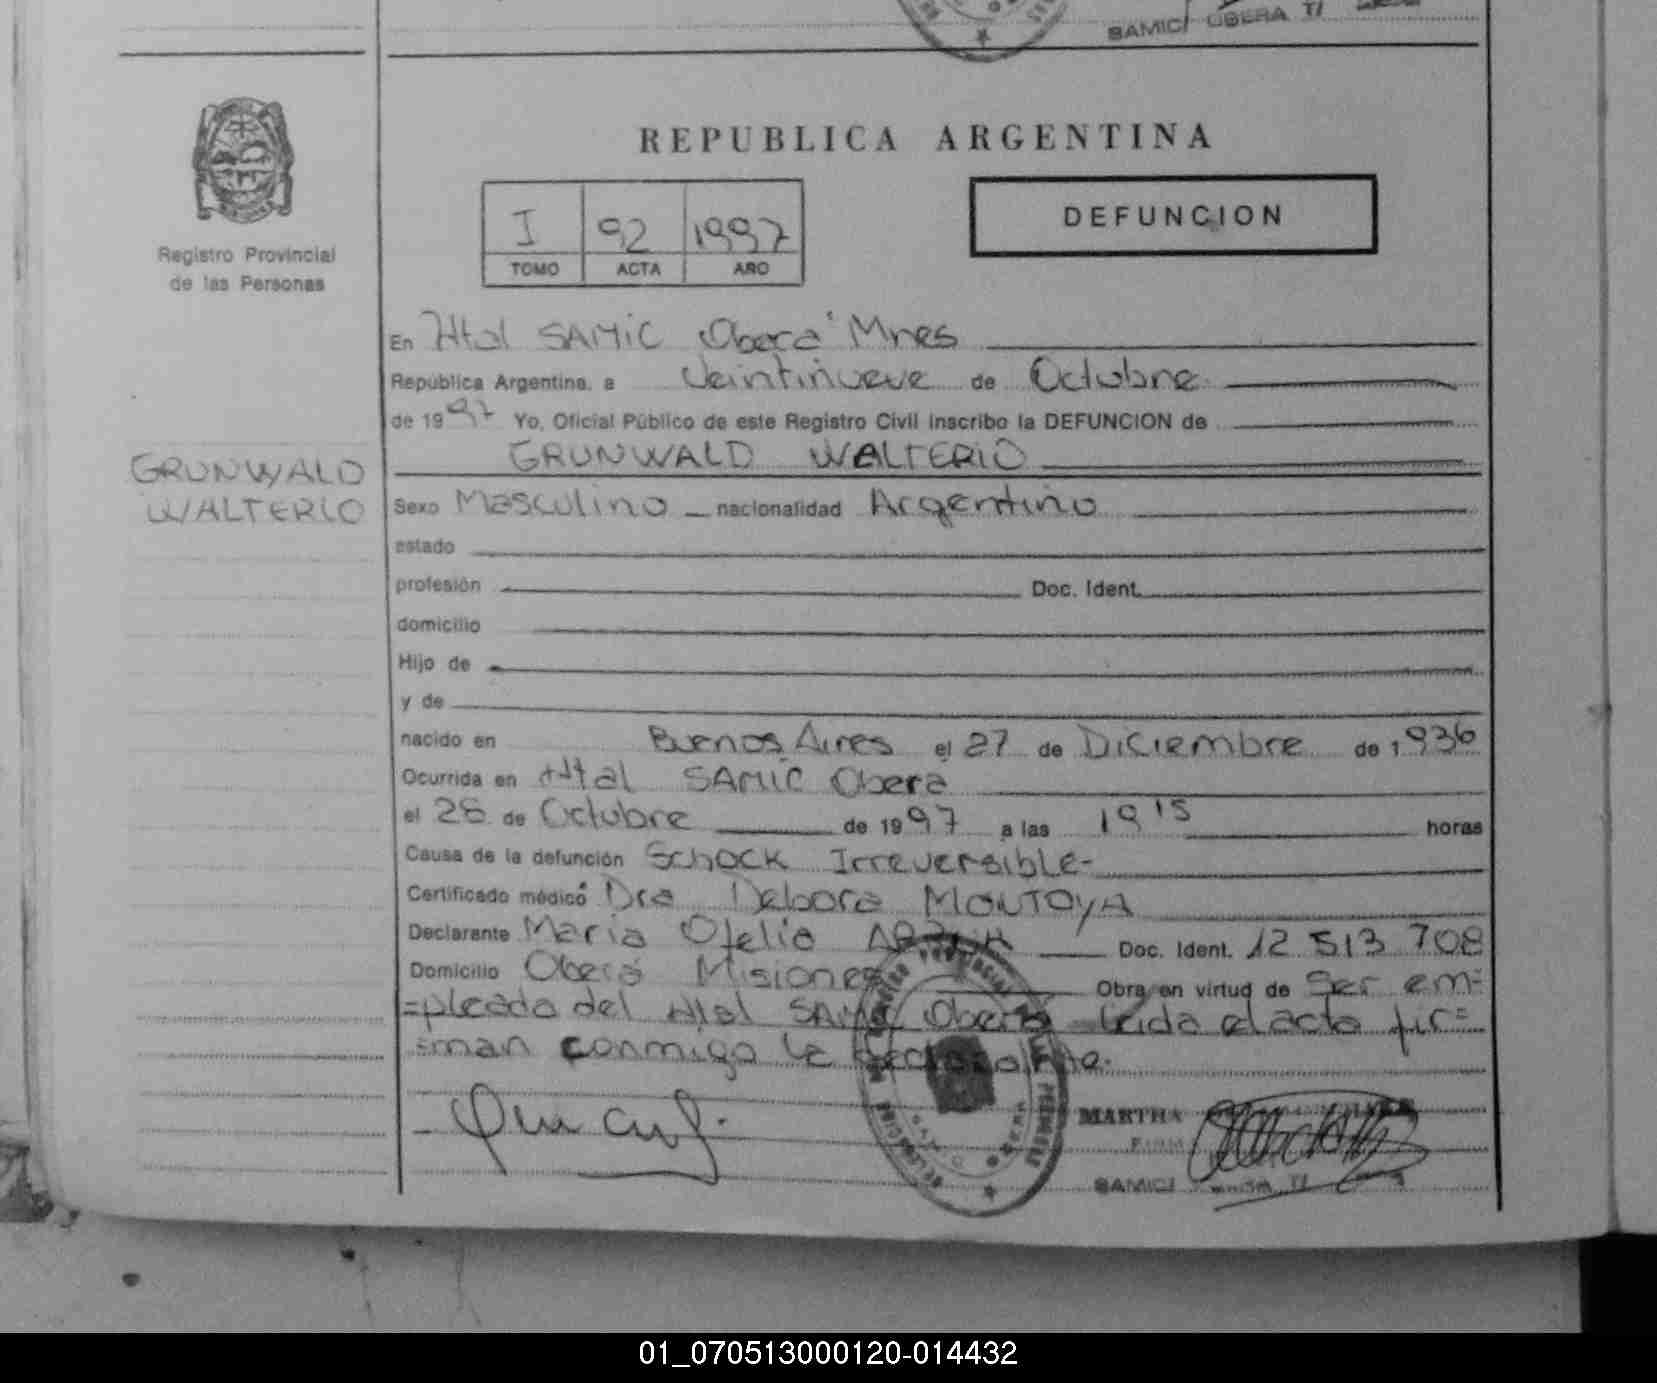 SAMIC OBERA T/
REPUBLICA ARGENTINA
I 92 1997
TOMO ACTA AÑO
DEFUNCION
Registro Provincial
de las Personas
En Htal SAMIC Oberá Mnes
República Argentina, a Veintinueve de Octubre
de 1997 Yo, Oficial Público de este Registro Civil inscribo la DEFUNCION de
GRUNWALD WALTERIO
GRUNWALD
WALTERIO
Sexo Masculino nacionalidad Argentino
estado
profesión Doc. Ident.
domicilio
Hijo de
y de
nacido en Buenos Aires el 27 de Diciembre de 1936
Ocurrida en Htal SAMIC Obera
el 28 de Octubre de 1997 a las 19 15 horas
Causa de la defunción Schock Irreversible-
Certificado médico Dra Debora MONTOYA
Declarante Maria Ofelia Doc. Ident. 12 513 708
Domicilio Oberá Misiones Obra en virtud de Ser em=
=pleada del Htal SAMIC Oberá Leida el acta fir=
=man conmigo la declarante.
MARTHA
SAMIC T/
01_070513000120-014432